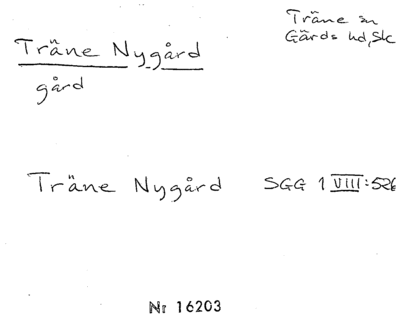 Träne sn
Gärds hd, Sk
Träne Nygård
gård
Träne Nygård SGG 1 VIII:526
Nr 16203